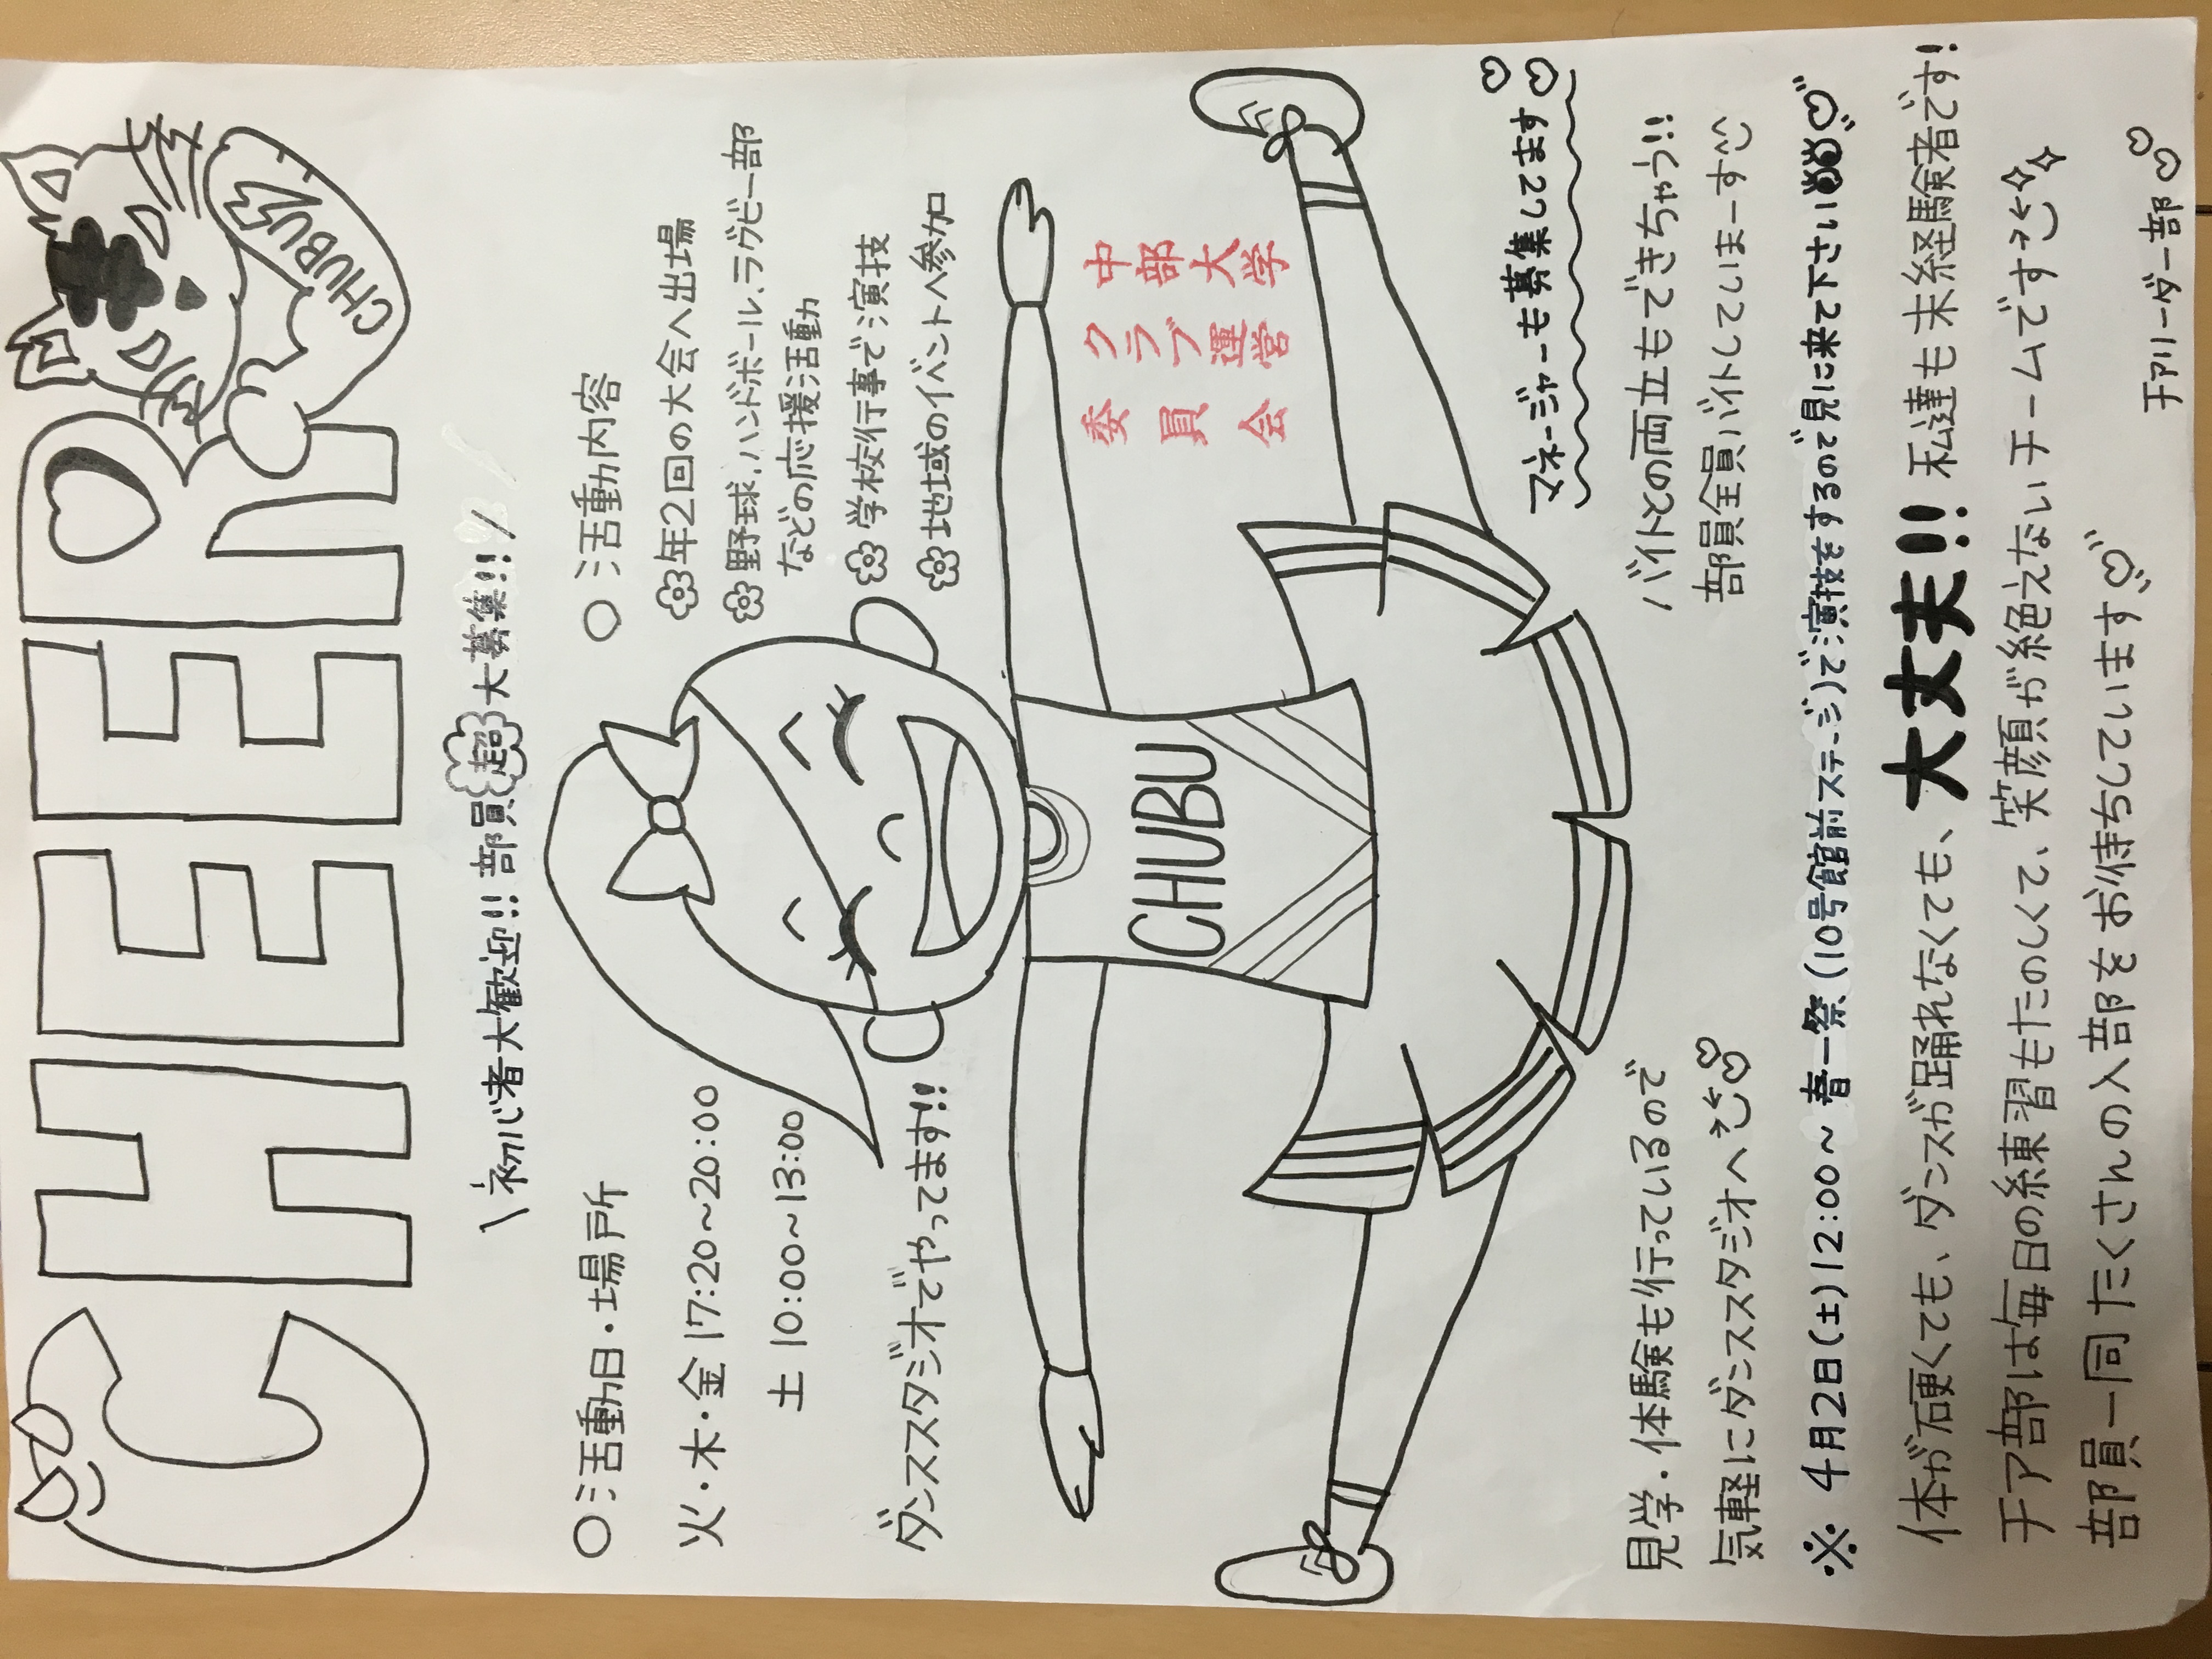 CHEER
CHUBU
\初心者大歓迎!! 部員超大募集!!/
○活動日・場所
火・木・金 17:20~20:00
土 10:00~13:00
ダンススタジオでやってます!!
○活動内容
年2回の大会へ出場
野球、ハンドボール、ラグビー部
などの応援活動
学校行事で演技
地域のイベントへ参加
CHUBU
中部大学
クラブ運営
委員会
マネージャーも募集してます♡♡
見学・体験も行っているので
気軽にダンススタジオへ♡♡
バイトとの両立もできちゃう!!
部員全員バイトしてしまーす
※4月2日(土)12:00~ 春一祭(10号館前ステージ)で演技をするので見に来て下さい♡
体が硬くても、ダンスが踊れなくても、大丈夫!! 私達も未経験者です!
チア部は毎日の練習もたのしくて、笑顔が絶えないチームです
部員一同たくさんの入部をお待ちしています♡
チアリーダー部♡♡